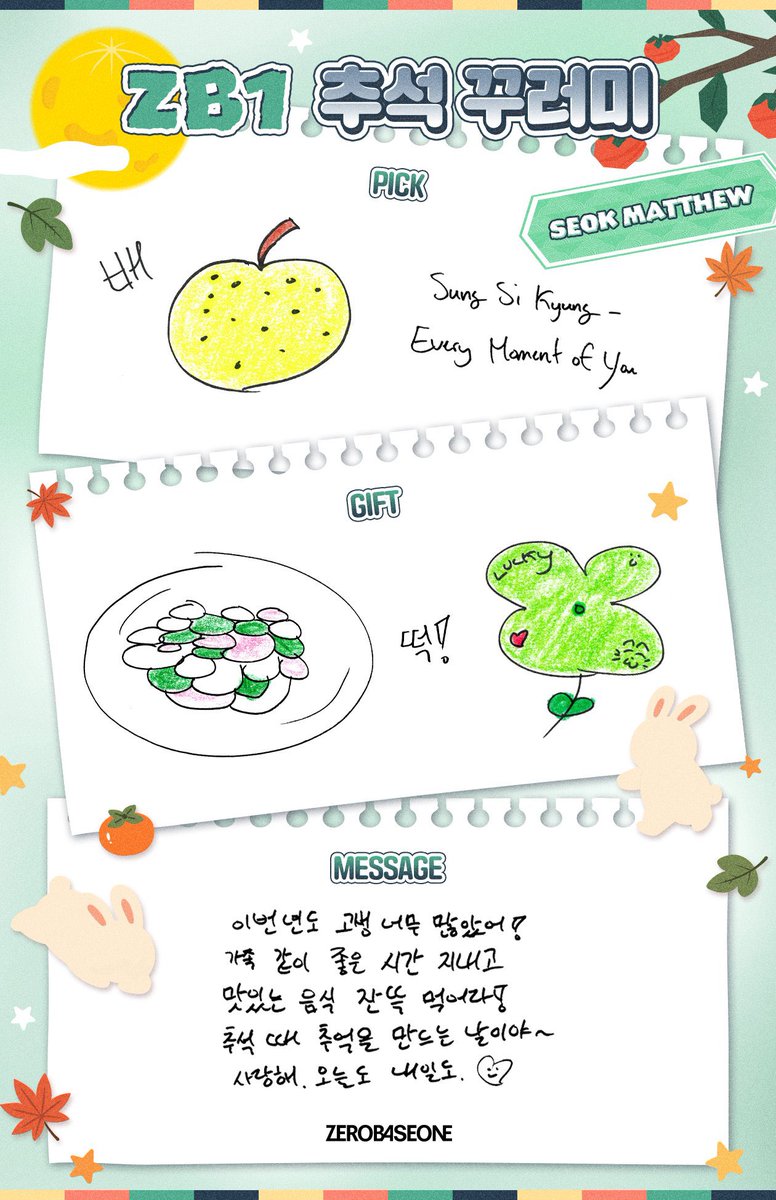 ZB1 추석 꾸러미
PICK
SEOK MATTHEW
배
Sung Si Kyung -
Every Moment of You
GIFT
떡!
LUCKY
MESSAGE
이번년도 고생 너무 많았어!
가족 같이 좋은 시간 지내고
맛있는 음식 잔뜩 먹어라!
추석 때 추억을 만드는 날이야~
사랑해. 오늘도 내일도.
ZEROBASEONE